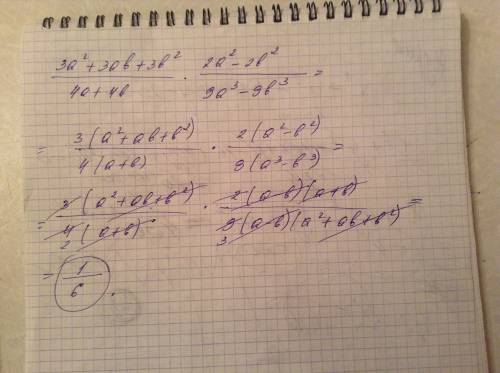 (3a² + 3ab + 3b²)/(4a + 4b) · (2a² - 2b²)/(9a³ - 9b³) =
= 3(a² + ab + b²)/4(a + b) · 2(a² - b²)/9(a³ - b³) =
= 3(a² + ab + b²)/4(a + b) 2 · 2(a - b)(a + b)/9(a - b)(a² + ab + b²) 3 =
= 1/6 .